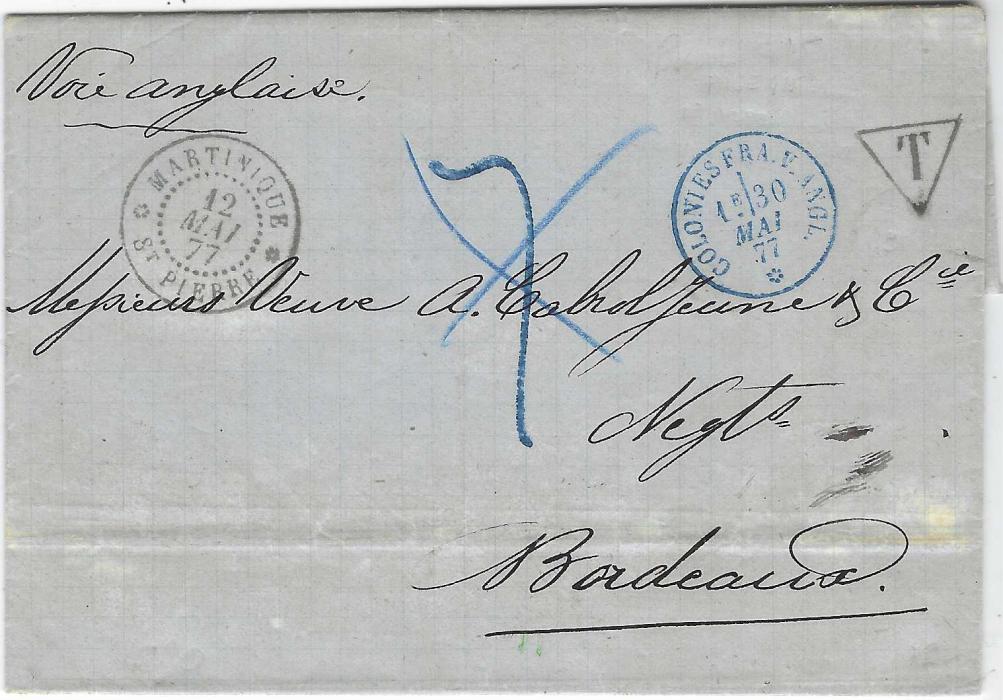 Voie anglaise.
MARTINIQUE
12
MAI
77
ST PIERRE
COLONIES FRA. V. ANGL.
1E 30
MAI
77
T
7
Messieurs Veuve A. Cabrol Jeune & Cie
Negts
Bordeaux.